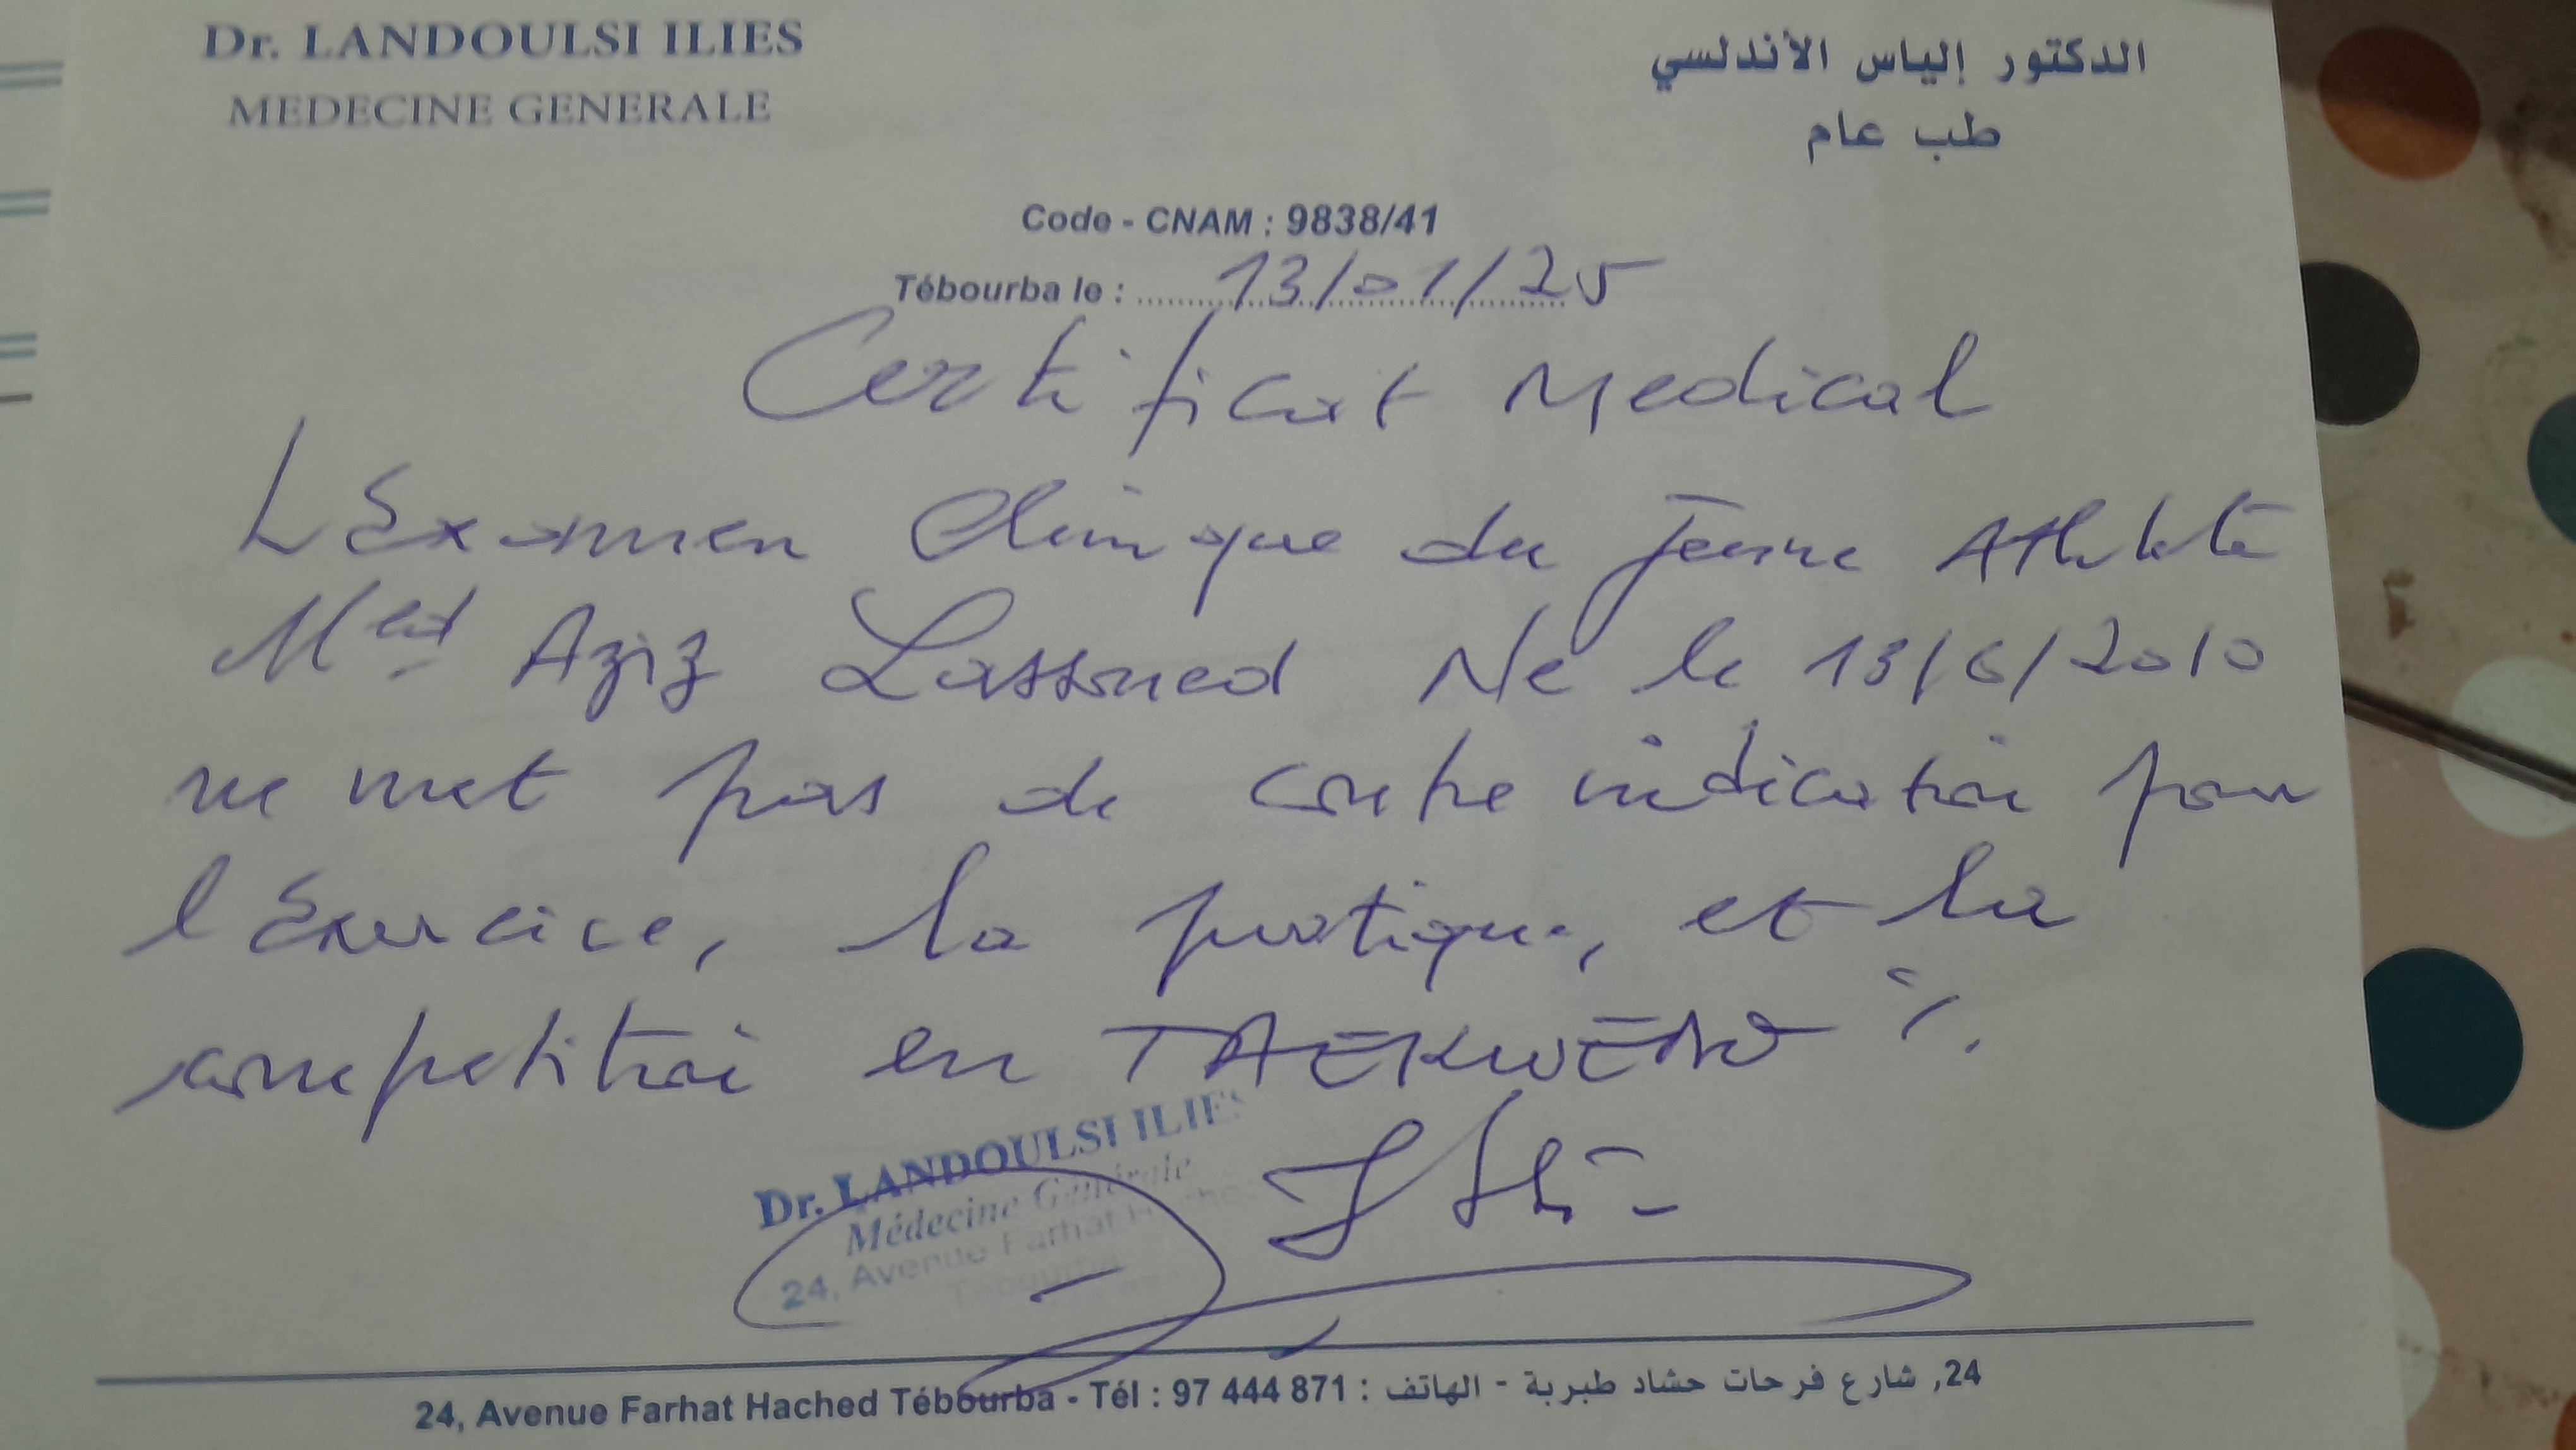 Dr. LANDOULSI ILIES
MEDECINE GENERALE
الدكتور إلياس الأندلسي
طب عام
Code - CNAM : 9838/41
Tébourba le : 13/01/25
Certificat Medical
L'Examen Clinique du jeune Athlete
Med Aziz Lassoued Né le 13/6/2010
ne met pas de contre indication pour
l'Exercice, la pratique, et la
competition en TAEKWENDO ٪.
Dr. LANDOULSI ILIES
Médecine Générale
24, Avenue Farhat Hached
Tébourba
24, Avenue Farhat Hached Tébourba - Tél : 97 444 871 : 24, شارع فرحات حشاد طبربة - الهاتف